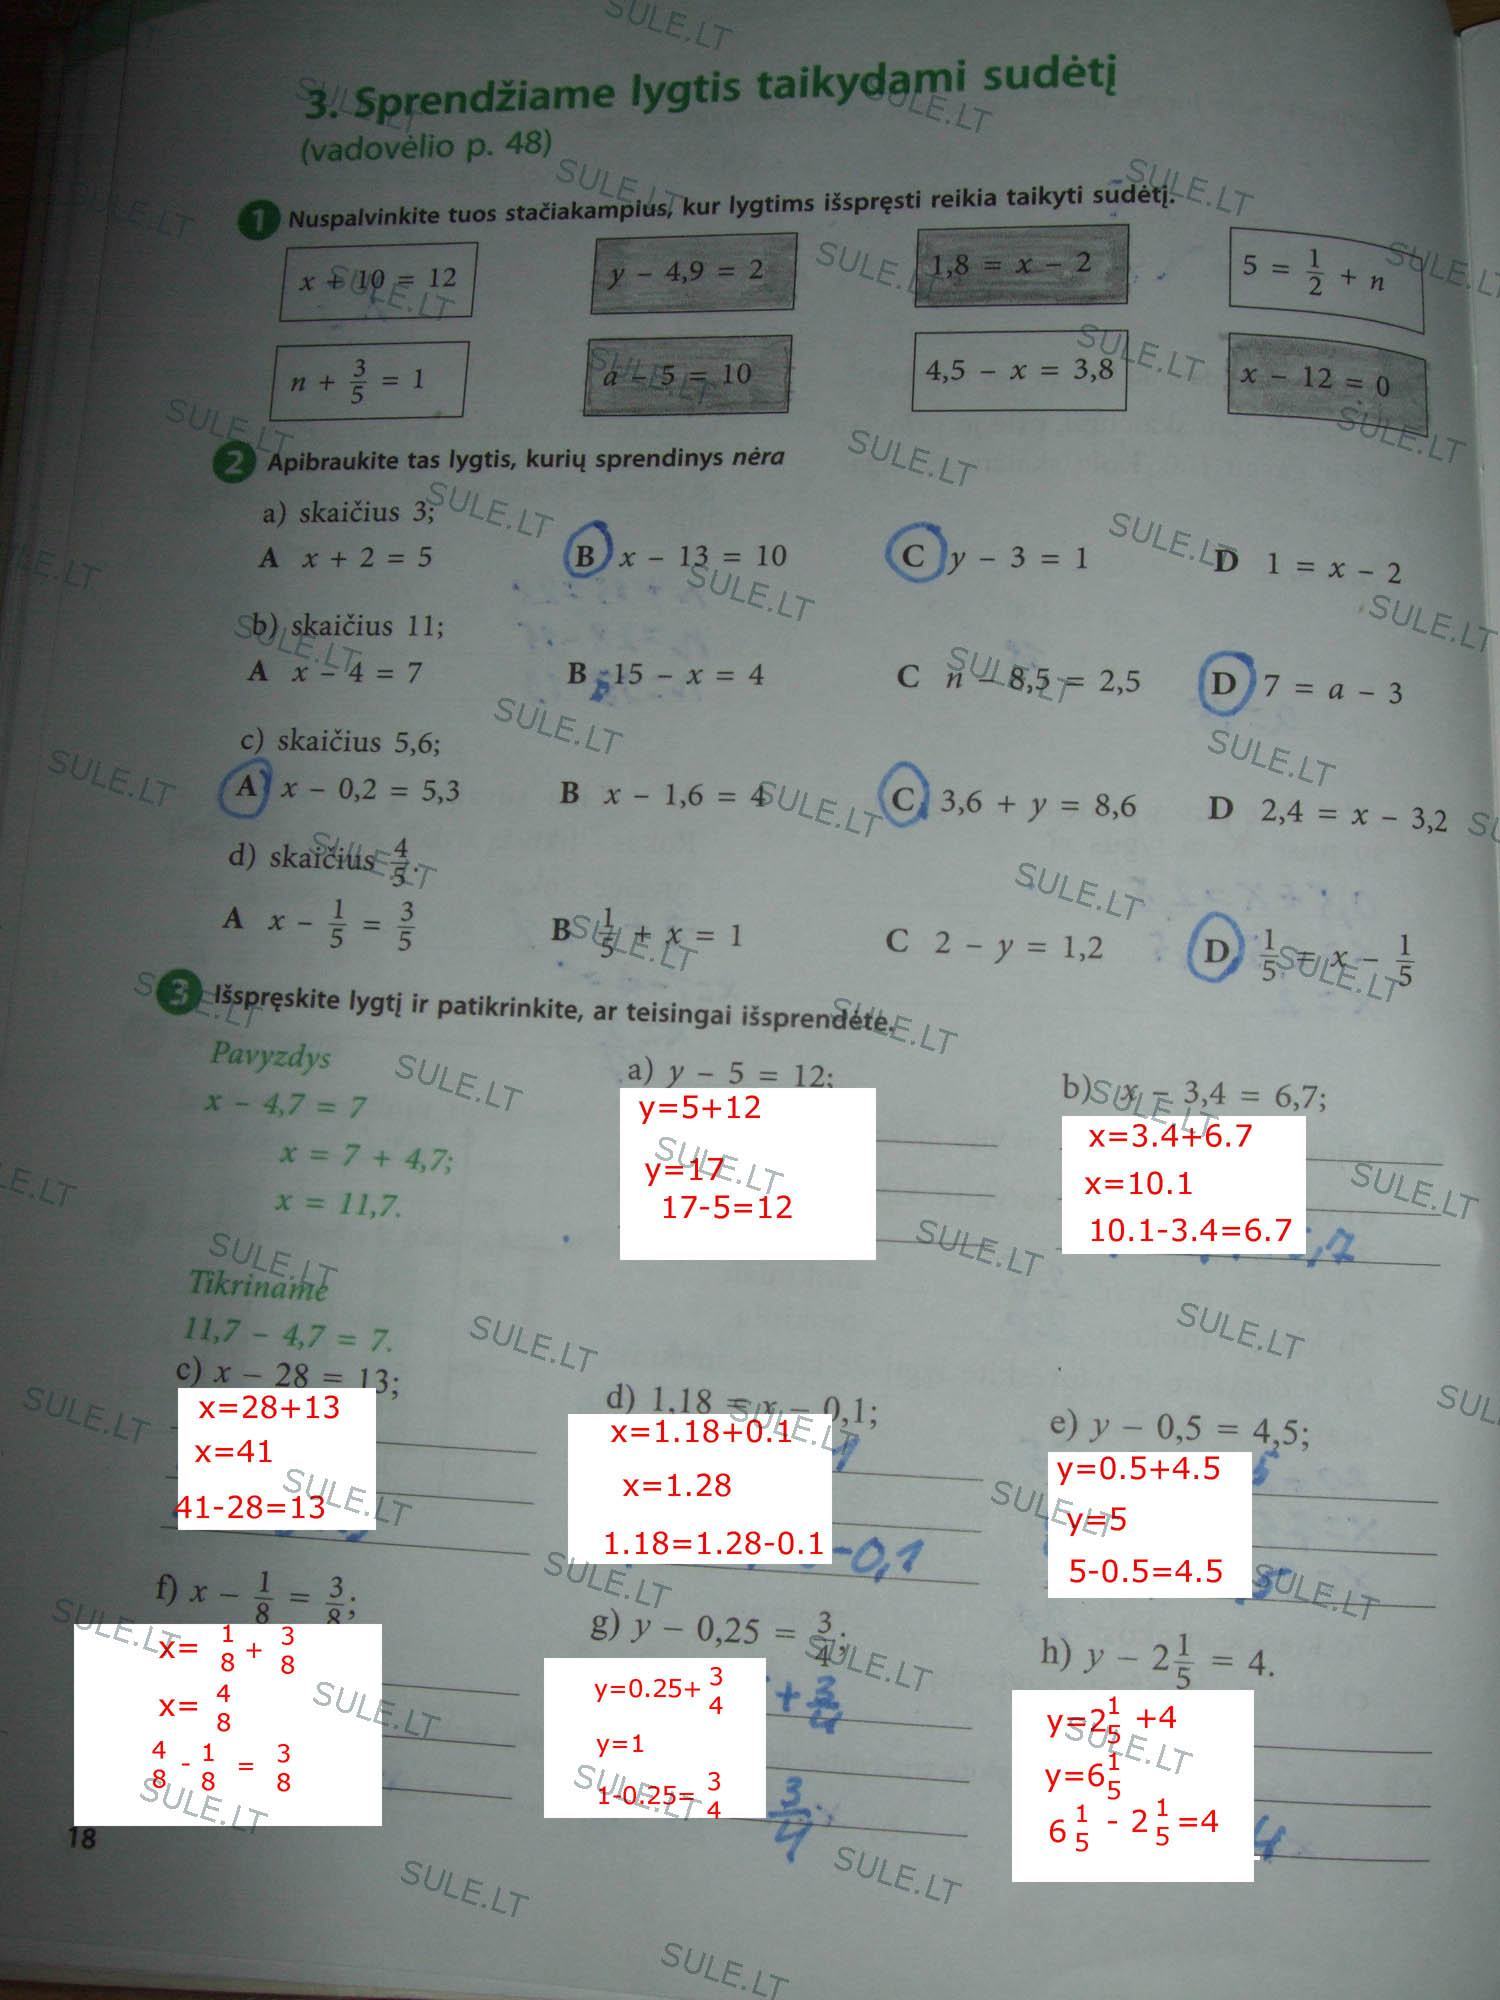 3. Sprendžiame lygtis taikydami sudėtį
(vadovėlio p. 48)
1 Nuspalvinkite tuos stačiakampius, kur lygtims išspręsti reikia taikyti sudėtį.
x + 10 = 12 y – 4,9 = 2 1,8 = x – 2 5 = 1/2 + n
n + 3/5 = 1 a – 5 = 10 4,5 – x = 3,8 x – 12 = 0
2 Apibraukite tas lygtis, kurių sprendinys nėra
a) skaičius 3;
A x + 2 = 5 B x – 13 = 10 C y – 3 = 1 D 1 = x – 2
b) skaičius 11;
A x – 4 = 7 B 15 – x = 4 C n – 8,5 = 2,5 D 7 = a – 3
c) skaičius 5,6;
A x – 0,2 = 5,3 B x – 1,6 = 4 C 3,6 + y = 8,6 D 2,4 = x – 3,2
d) skaičius 4/5.
A x – 1/5 = 3/5 B 1/5 + x = 1 C 2 – y = 1,2 D 1/5 = x – 1/5
3 Išspręskite lygtį ir patikrinkite, ar teisingai išsprendėte.
Pavyzdys
x – 4,7 = 7
x = 7 + 4,7;
x = 11,7.
Tikriname
11,7 – 4,7 = 7.
a) y – 5 = 12;
y=5+12
y=17
17-5=12
b) x – 3,4 = 6,7;
x=3.4+6.7
x=10.1
10.1-3.4=6.7
c) x – 28 = 13;
x=28+13
x=41
41-28=13
d) 1,18 = x – 0,1;
x=1.18+0.1
x=1.28
1.18=1.28-0.1
-0,1
e) y – 0,5 = 4,5;
y=0.5+4.5
y=5
5-0.5=4.5
f) x – 1/8 = 3/8;
x= 1/8 + 3/8
x= 4/8
4/8 - 1/8 = 3/8
g) y – 0,25 = 3/4;
y=0.25+ 3/4
+ 3/4
y=1
1-0.25= 3/4
3/4
h) y – 2 1/5 = 4.
y=2 1/5 +4
y=6 1/5
6 1/5 - 2 1/5 =4
4
18
SULE.LT